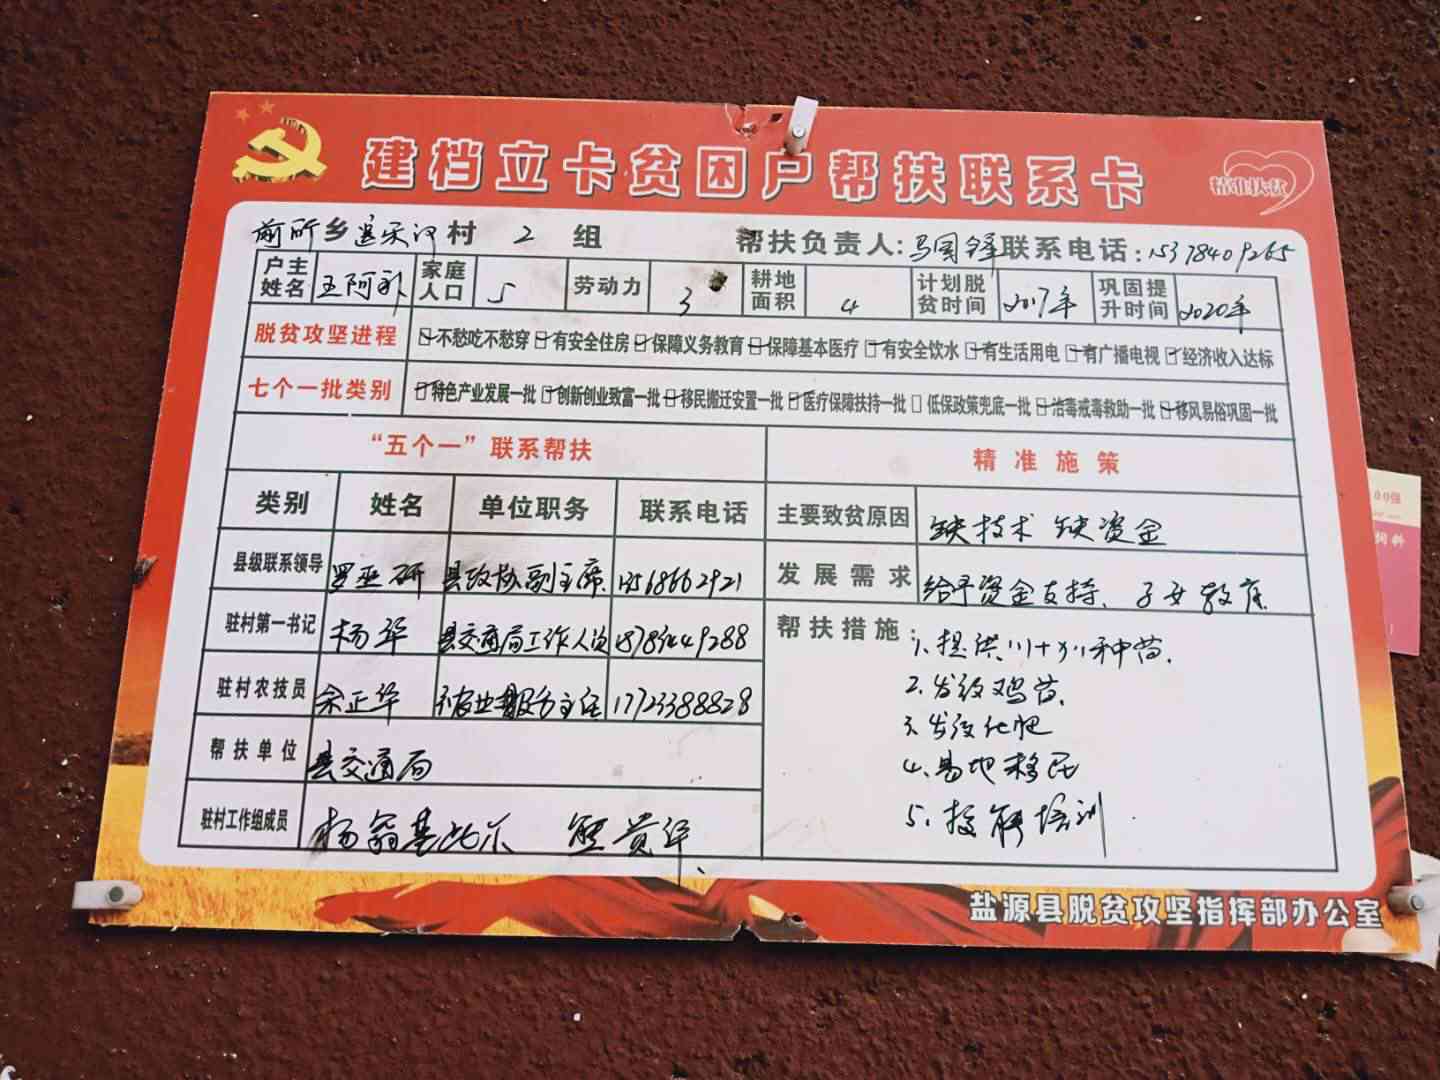 建档立卡贫困户帮扶联系卡
精准扶贫
前所乡 村 2 组 帮扶负责人:马国锋 联系电话:15378409265
户主姓名 王阿 家庭人口 5 劳动力 3 耕地面积 4 计划脱贫时间 2017年 巩固提升时间 2020年
脱贫攻坚进程 不愁吃不愁穿 有安全住房 保障义务教育 保障基本医疗 有安全饮水 有生活用电 有广播电视 经济收入达标
七个一批类别 特色产业发展一批 创新创业致富一批 移民搬迁安置一批 医疗保障扶持一批 低保政策兜底一批 治毒戒毒救助一批 移风易俗巩固一批
“五个一”联系帮扶 精准施策
类别 姓名 单位职务 联系电话 主要致贫原因 缺技术 缺资金
县级联系领导 罗亚研 县政协副主席 13568662921 发展需求 给予资金支持、子女教育
驻村第一书记 杨华 县交通局工作人员 帮扶措施:
1、提供 种苗.
驻村农技员 余正华 主任 17723388828
2、发放鸡苗.
3、发放化肥
帮扶单位 县交通局
4、易地移民
驻村工作组成员 杨 基比尔 熊黄华
5、技能培训
盐源县脱贫攻坚指挥部办公室
00强
饲料